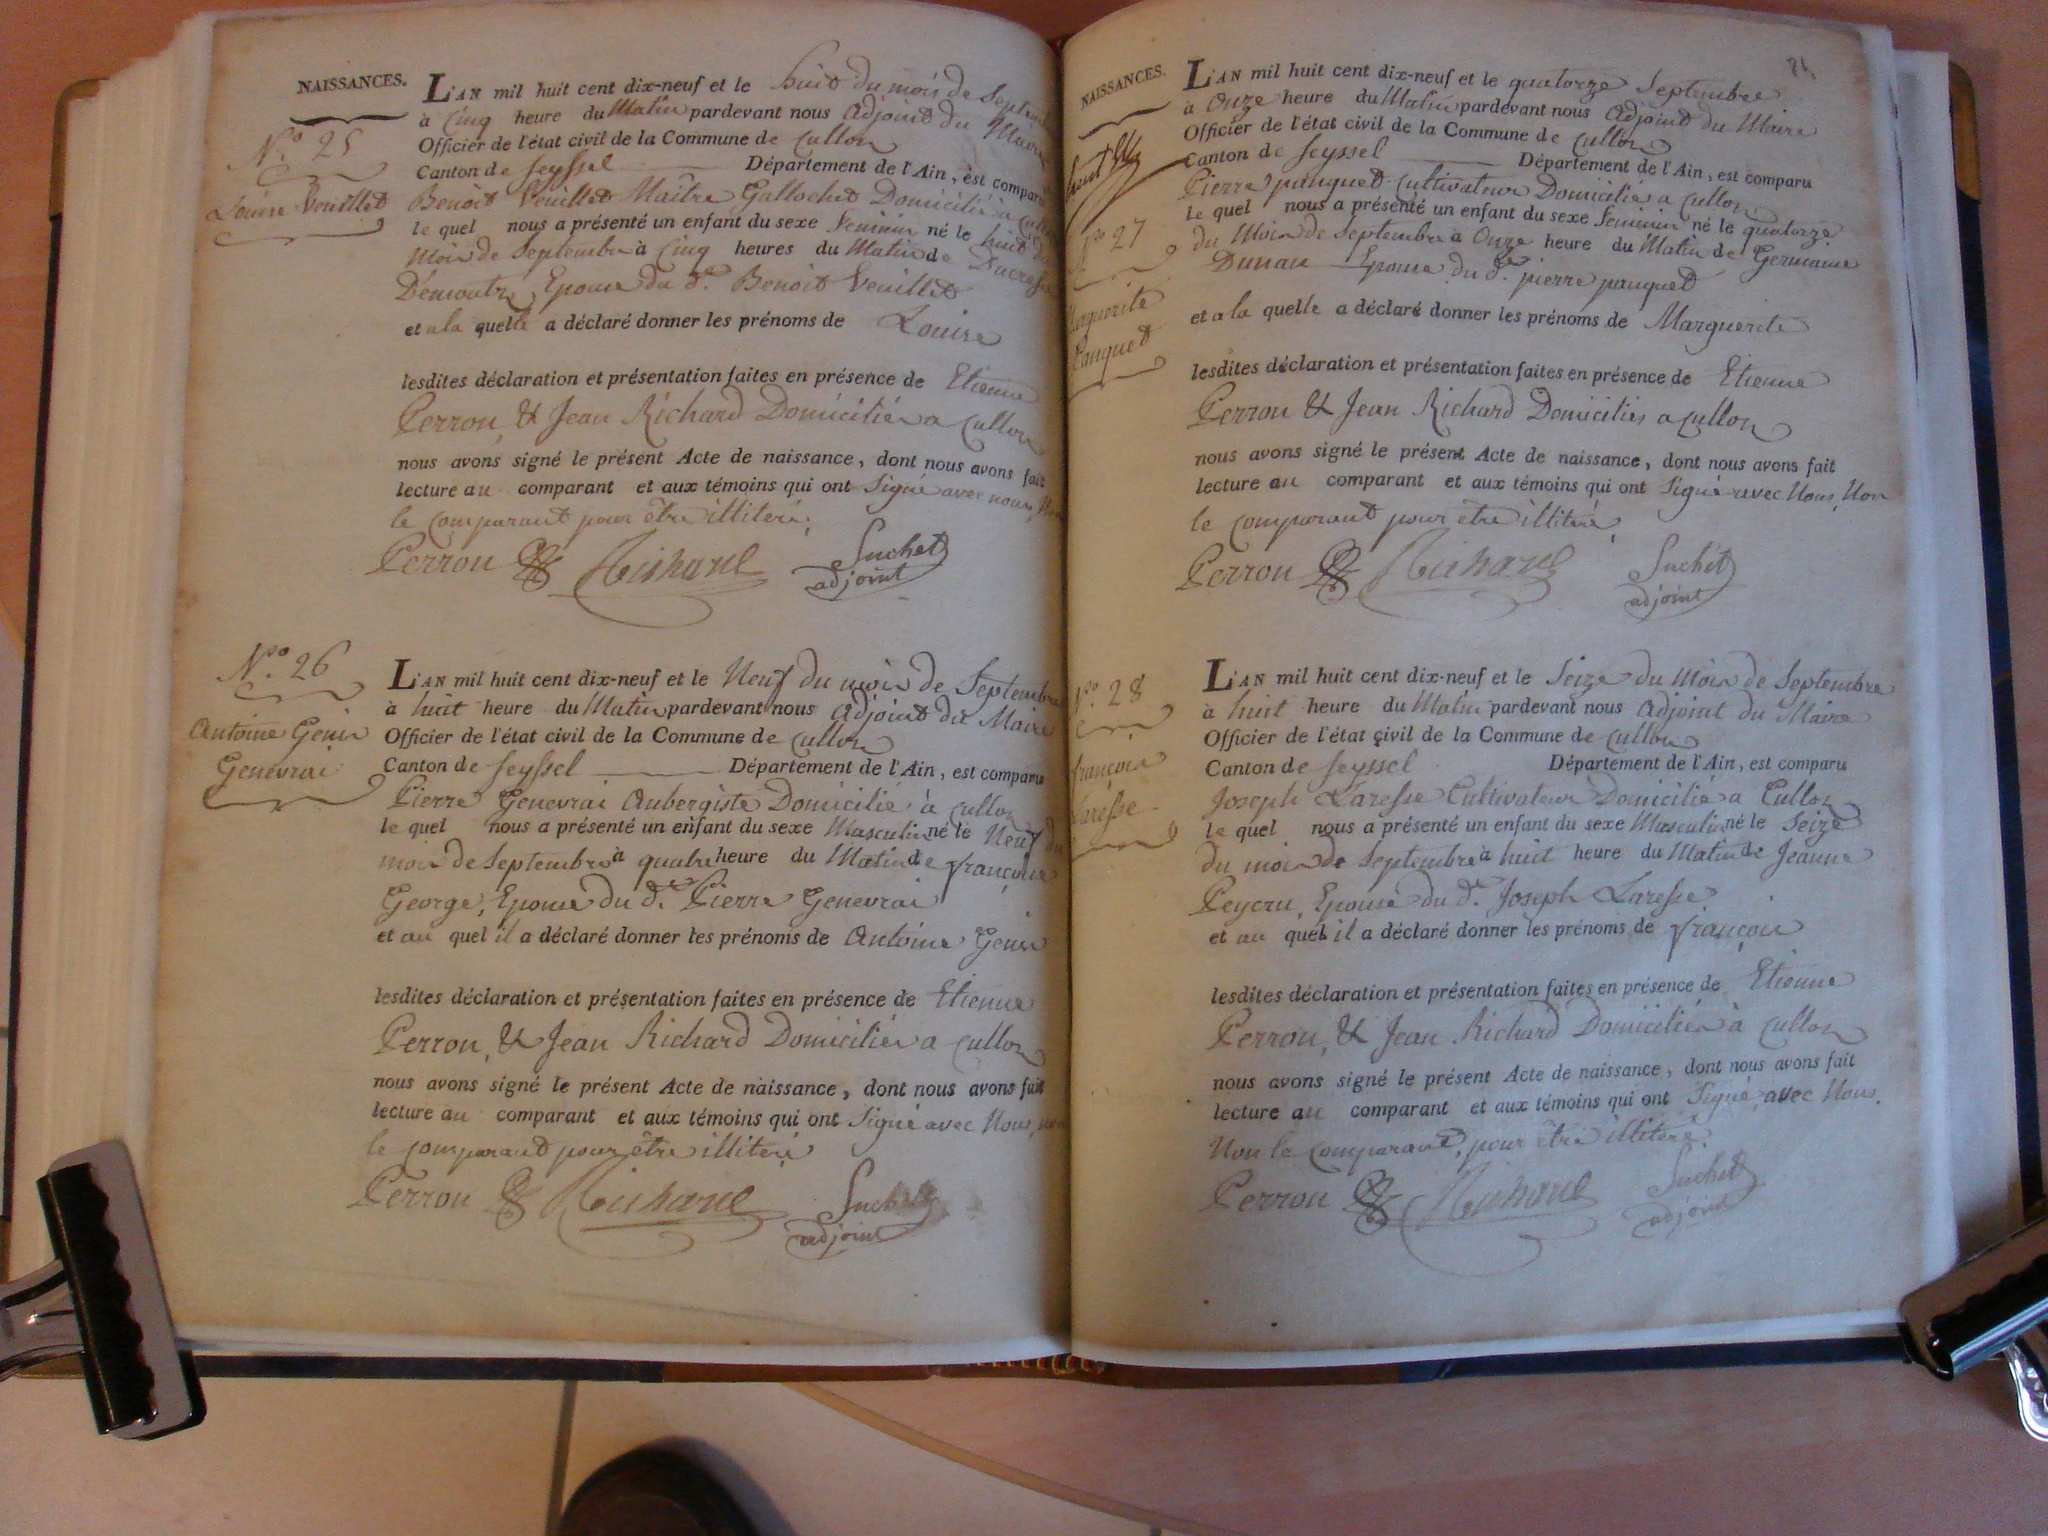 NAISSANCES.
N.º 25
Louise Veuillet
L'AN mil huit cent dix-neuf et le huit du mois de Septembre
à Cinq heure du Matin pardevant nous Adjoint du Maire
Officier de l'état civil de la Commune de Culloz
Canton de Seyssel Département de l'Ain, est comparu
Benoit Veuillet Maitre Domicilié à
le quel nous a présenté un enfant du sexe Feminin né le huit du
Mois de Septembre à Cinq heures du Matin de
Epouse du d.t Benoit Veuillet
et a la quelle a déclaré donner les prénoms de Louise
lesdites déclaration et présentation faites en présence de Etienne
Perrou & Jean Richard Domiciliés a Culloz
nous avons signé le présent Acte de naissance, dont nous avons fait
lecture au comparant et aux témoins qui ont Signé avec nous, Non
le comparant pour être illiteré.
Perrou Richard Suchet
adjoint
N.º 26
Antoine Genis
Genevrai
L'AN mil huit cent dix-neuf et le Neuf du mois de Septembre
à huit heure du Matin pardevant nous Adjoint du Maire
Officier de l'état civil de la Commune de Culloz
Canton de Seyssel Département de l'Ain, est comparu
Pierre Genevrai Aubergiste Domicilié à Culloz
le quel nous a présenté un enfant du sexe Masculin né le Neuf du
mois de Septembre à quatre heure du Matin de françoise
George, Epouse du d.t Pierre Genevrai
et au quel il a déclaré donner les prénoms de Antoine Genis
lesdites déclaration et présentation faites en présence de Etienne
Perrou, & Jean Richard Domiciliés a Culloz
nous avons signé le présent Acte de naissance, dont nous avons fait
lecture au comparant et aux témoins qui ont Signé avec Nous, non
le comparant pour être illiteré
Perrou Richard Suchet
adjoint
NAISSANCES.
N.º 27
Marguerite
Pauquet
L'AN mil huit cent dix-neuf et le quatorze Septembre
à Onze heure du Matin pardevant nous Adjoint du Maire
Officier de l'état civil de la Commune de Culloz
Canton de Seyssel Département de l'Ain, est comparu
Pierre pauquet Cultivateur Domicilié a Culloz
le quel nous a présenté un enfant du sexe Feminin né le quatorze
du Mois de Septembre à Onze heure du Matin de Germaine
Dunan Epouse du d.t pierre pauquet
et a la quelle a déclaré donner les prénoms de Marguerite
lesdites déclaration et présentation faites en présence de Etienne
Perrou & Jean Richard Domiciliés a Culloz
nous avons signé le présent Acte de naissance, dont nous avons fait
lecture au comparant et aux témoins qui ont Signé avec Nous, Non
le comparant pour être illiteré
Perrou Richard Suchet
adjoint
N.º 28
françois
Laresse
L'AN mil huit cent dix-neuf et le Seize du Mois de Septembre
à huit heure du Matin pardevant nous Adjoint du Maire
Officier de l'état civil de la Commune de Culloz
Canton de Seyssel Département de l'Ain, est comparu
Joseph Laresse Cultivateur Domicilié a Culloz
le quel nous a présenté un enfant du sexe Masculin né le Seize
du mois de Septembre à huit heure du Matin de Jeanne
Peycru, Epouse du d.t Joseph Laresse
et au quel il a déclaré donner les prénoms de françois
lesdites déclaration et présentation faites en présence de Etienne
Perrou, & Jean Richard Domiciliés à Culloz
nous avons signé le présent Acte de naissance, dont nous avons fait
lecture au comparant et aux témoins qui ont Signé avec Nous.
Non le comparant, pour être illiteré.
Perrou Richard Suchet
adjoint